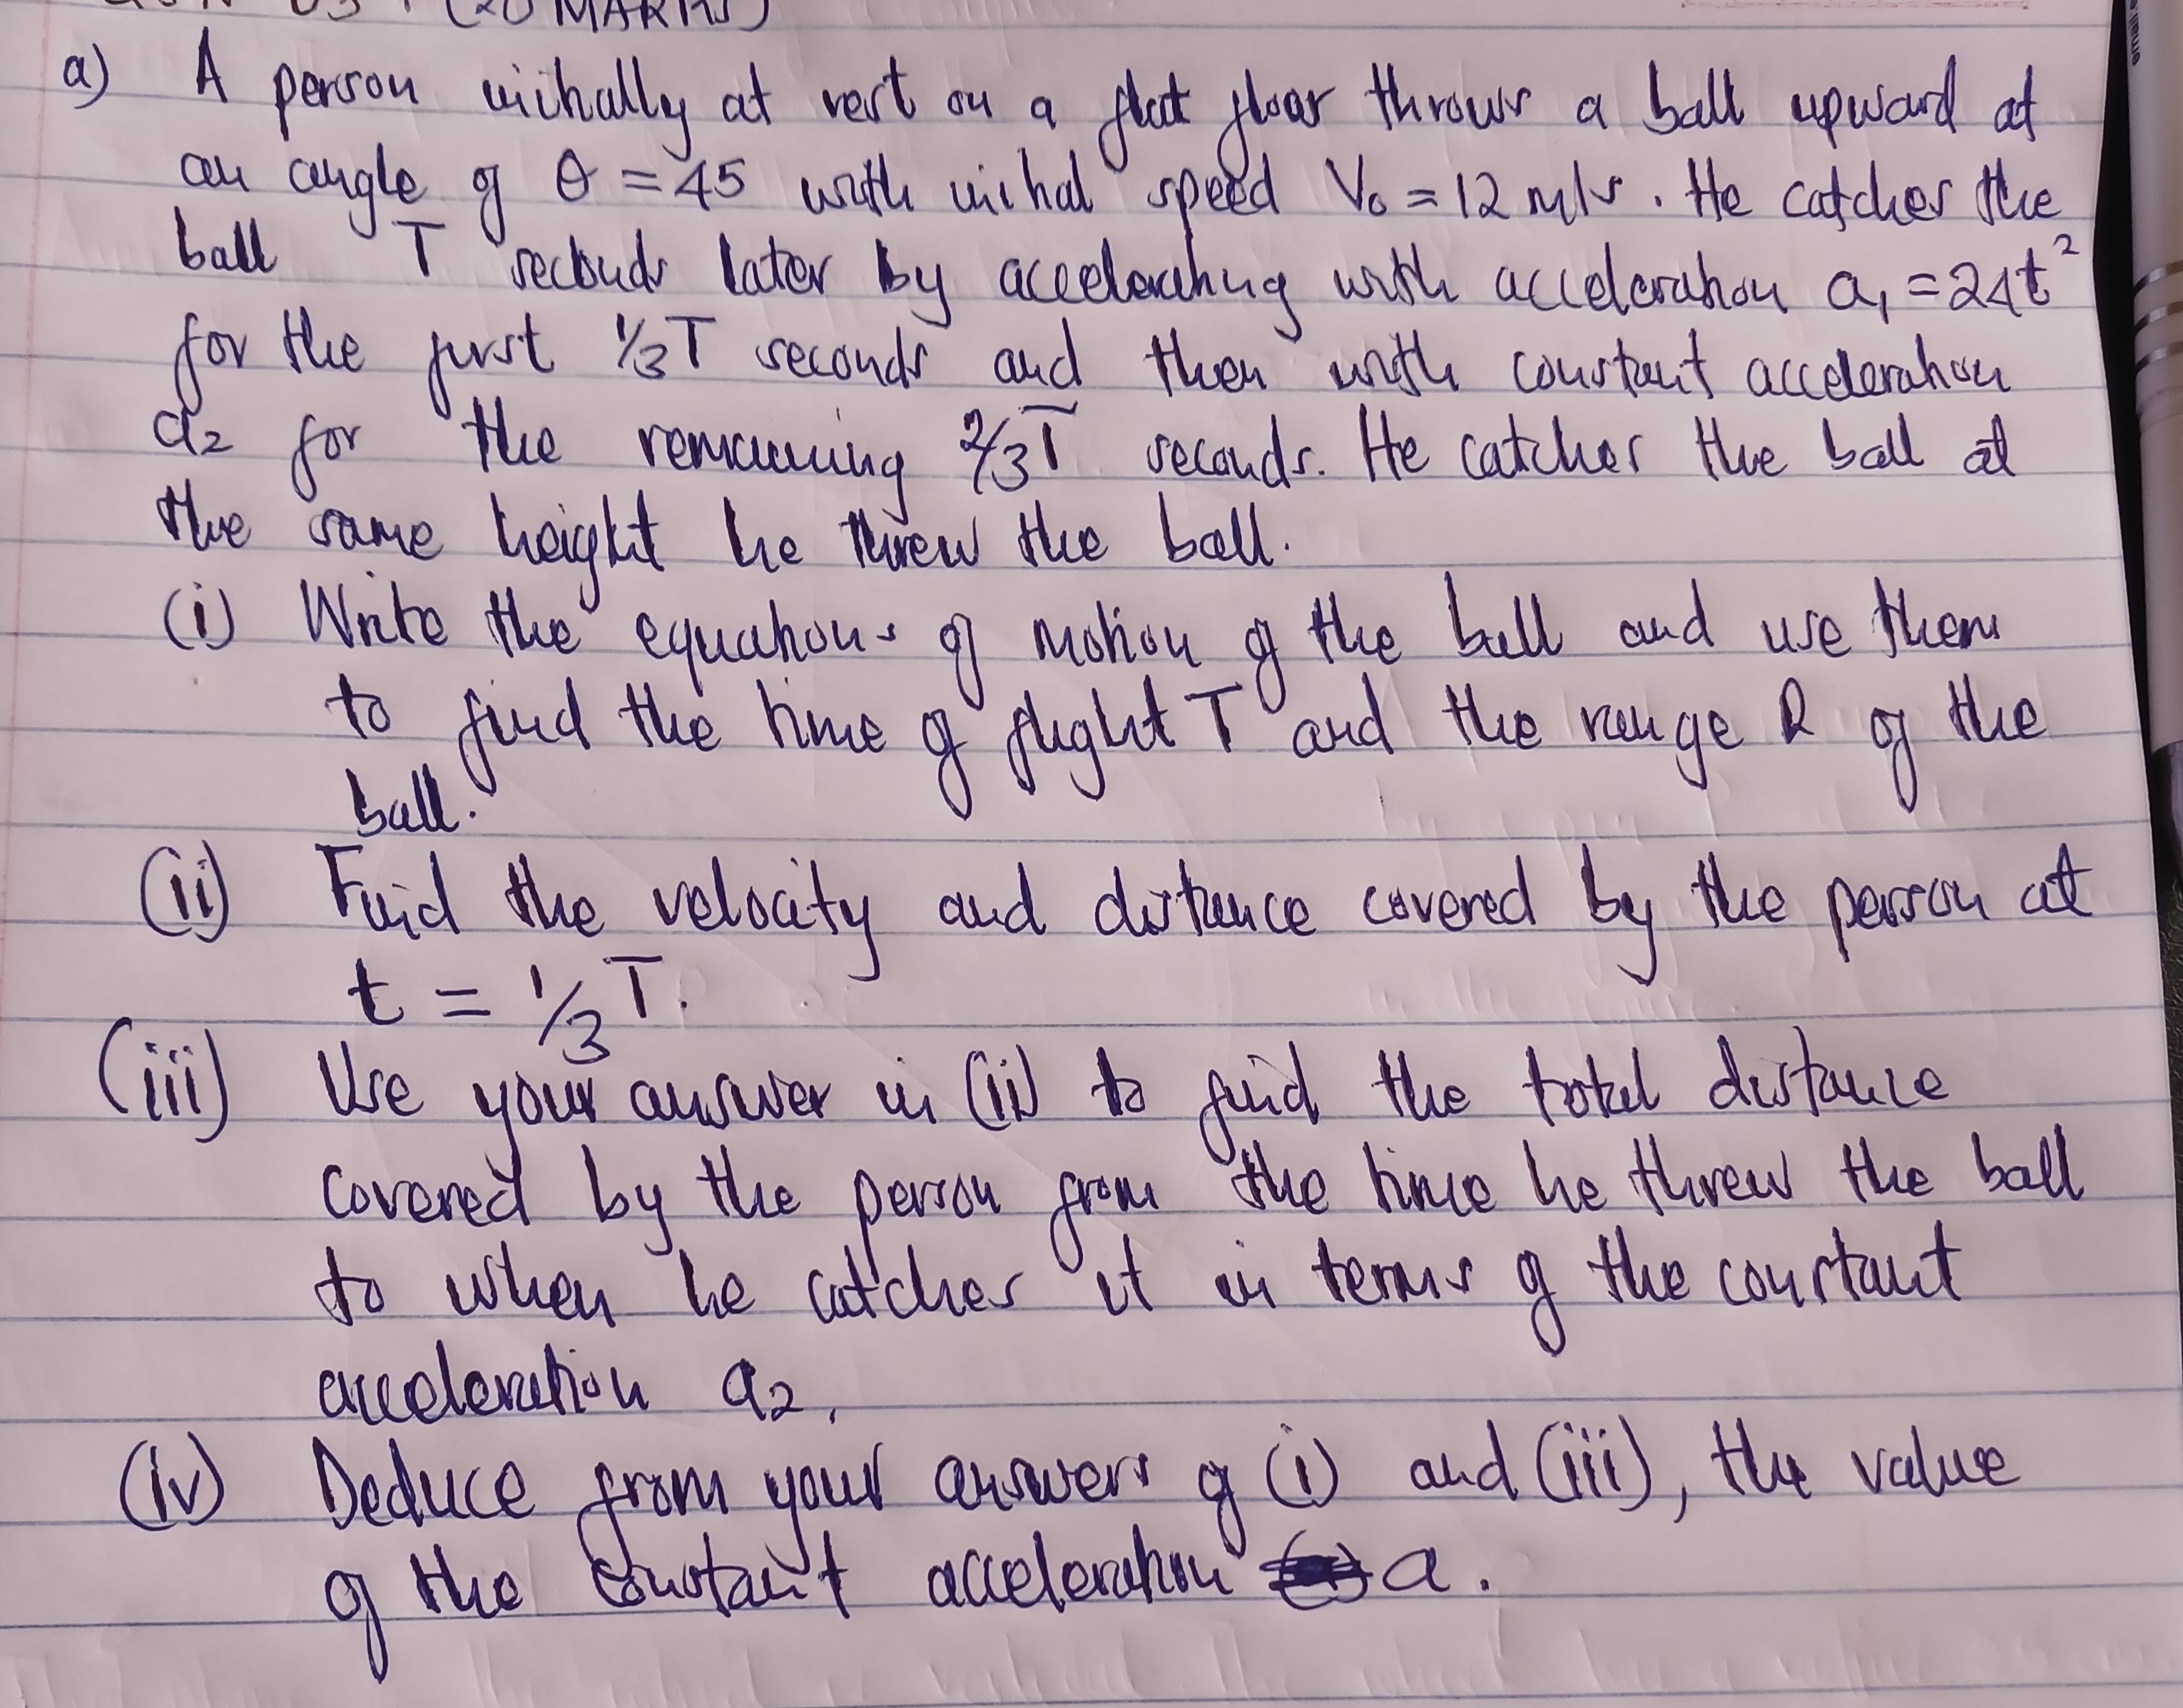 (20 MARKS)
a) A person initially at rest on a flat floor throws a ball upward at
an angle of θ = 45 with initial speed V₀ = 12 m/s. He catches the
ball T seconds later by accelerating with acceleration a₁ = 24t²
for the first 1/3T seconds and then with constant acceleration
a₂ for the remaining 2/3T seconds. He catches the ball at
the same height he threw the ball.
(i) Write the equations of motion of the ball and use them
to find the time of flight T and the range R of the
ball.
(ii) Find the velocity and distance covered by the person at
t = 1/3 T.
(iii) Use your answer in (ii) to find the total distance
covered by the person from the time he threw the ball
to when he catches it in terms of the constant
acceleration a₂.
(iv) Deduce from your answers of (i) and (iii), the value
of the constant acceleration a.